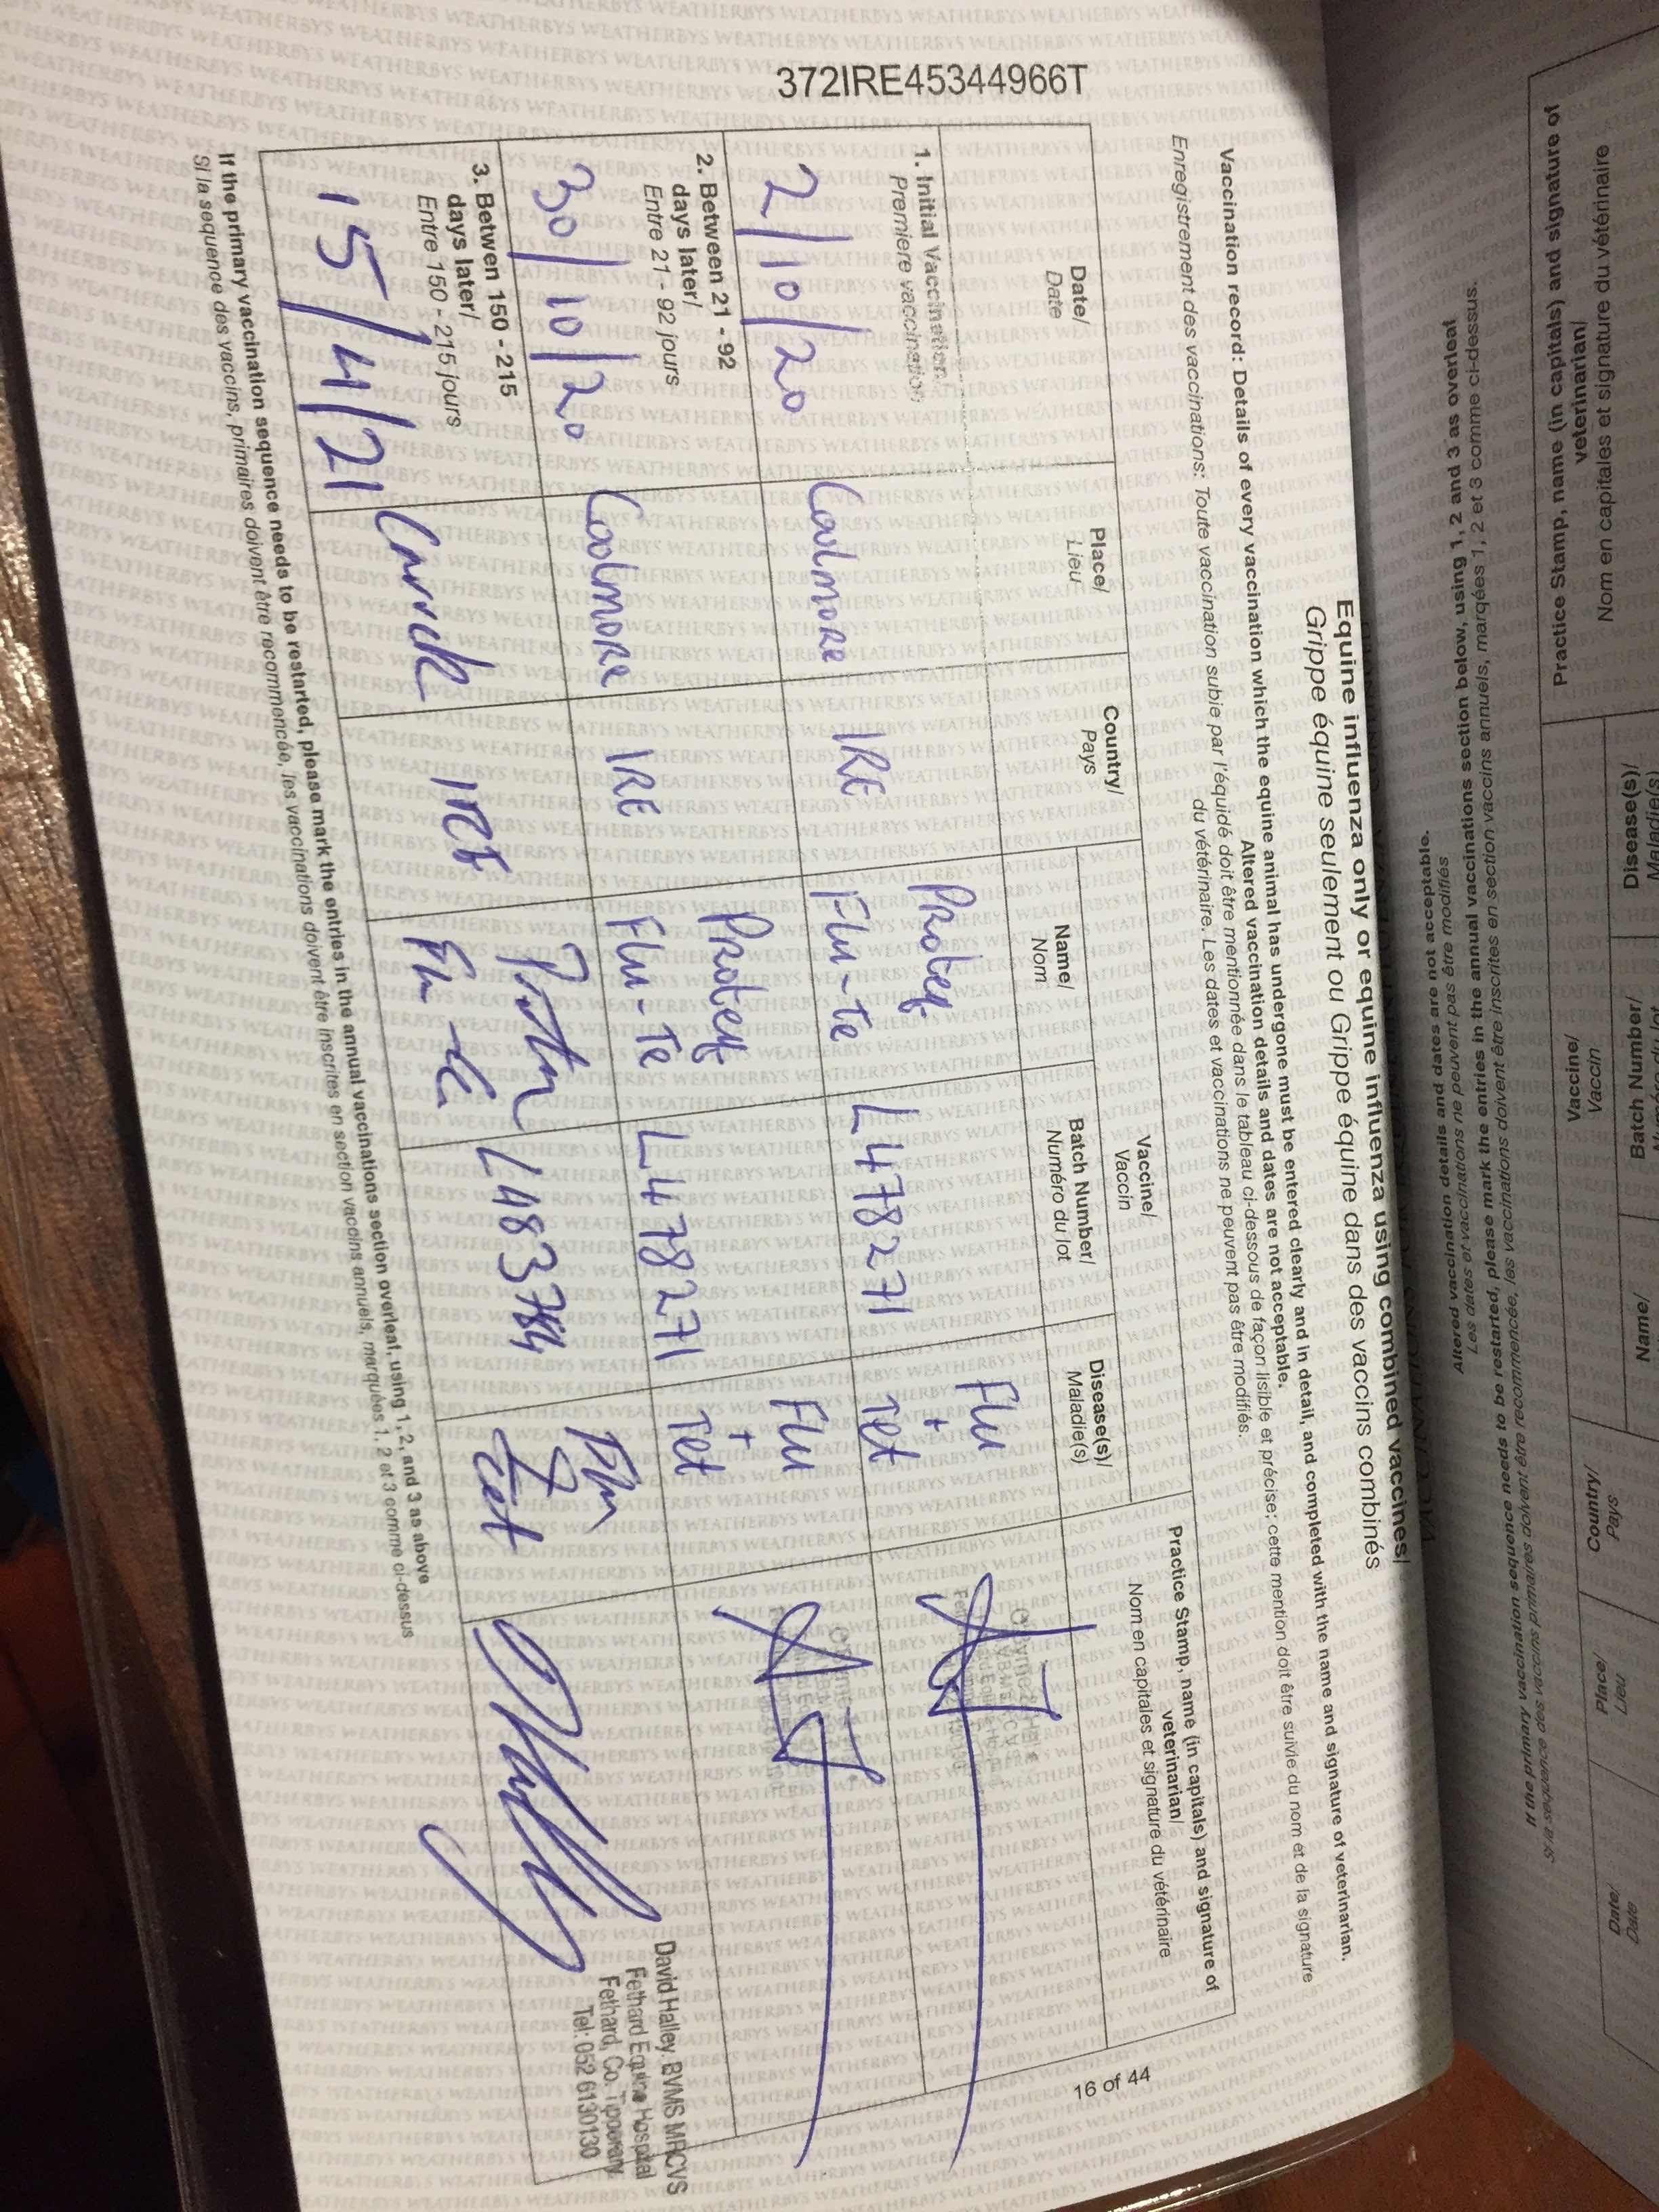 372IRE45344966T
Equine influenza only or equine influenza using combined vaccines/
Grippe équine seulement ou Grippe équine dans des vaccins combinés
Vaccination record: Details of every vaccination which the equine animal has undergone must be entered clearly and in detail, and completed with the name and signature of veterinarian.
Altered vaccination details and dates are not acceptable.
Enregistrement des vaccinations: Toute vaccination subie par l'équidé doit être mentionnée dans le tableau ci-dessous de façon lisible et précise; cette mention doit être suivie du nom et de la signature
du vétérinaire. Les dates et vaccinations ne peuvent pas être modifiés.
Date/
Date
Place/
Lieu
Country/
Pays
Vaccine/
Vaccin
Name/
Nom
Batch Number/
Numéro du lot
Disease(s)/
Maladie(s)
Practice Stamp, name (in capitals) and signature of
veterinarian/
Nom en capitales et signature du vétérinaire
1. Initial Vaccination/
Premiere vaccination
2/10/20
Coolmore
IRE
Proteq
Flu-te
L478271
Flu
+
Tet
2. Between 21 - 92
days later/
Entre 21 - 92 jours
30/10/20
Coolmore
IRE
Proteq
Flu-Te
L478271
Flu
+
Tet
3. Betwen 150 - 215
days later/
Entre 150 - 215 jours
15/4/21
Carrick
IRE
Flu-te
Tet
David Halley. BVMS MRCVS
Fethard Equine Hospital
Fethard, Co. Tipperary
Tel: 052 6130130
If the primary vaccination sequence needs to be restarted, please mark the entries in the annual vaccinations section overleaf, using 1, 2, and 3 as above
Si la sequence des vaccins, primaires doivent être recommencée, les vaccinations doivent être inscrites en section vaccins annuels, marquées 1, 2 et 3 comme ci-dessus
16 of 44
Altered vaccination details and dates are not acceptable.
Les dates et vaccinations ne peuvent pas être modifiés
If the primary vaccination sequence needs to be restarted, please mark the entries in the annual vaccinations section below, using 1, 2 and 3 as overleaf
Si la séquence des vaccins primaires doivent être recommencée, les vaccinations doivent être inscrites en section vaccins annuels, marqées 1, 2 et 3 comme ci-dessus.
Date/
Date
Place/
Lieu
Country/
Pays
Vaccine/
Vaccin
Name/
Batch Number/
Disease(s)/
Maladie(s)
Practice Stamp, name (in capitals) and signature of
veterinarian/
Nom en capitales et signature du vétérinaire